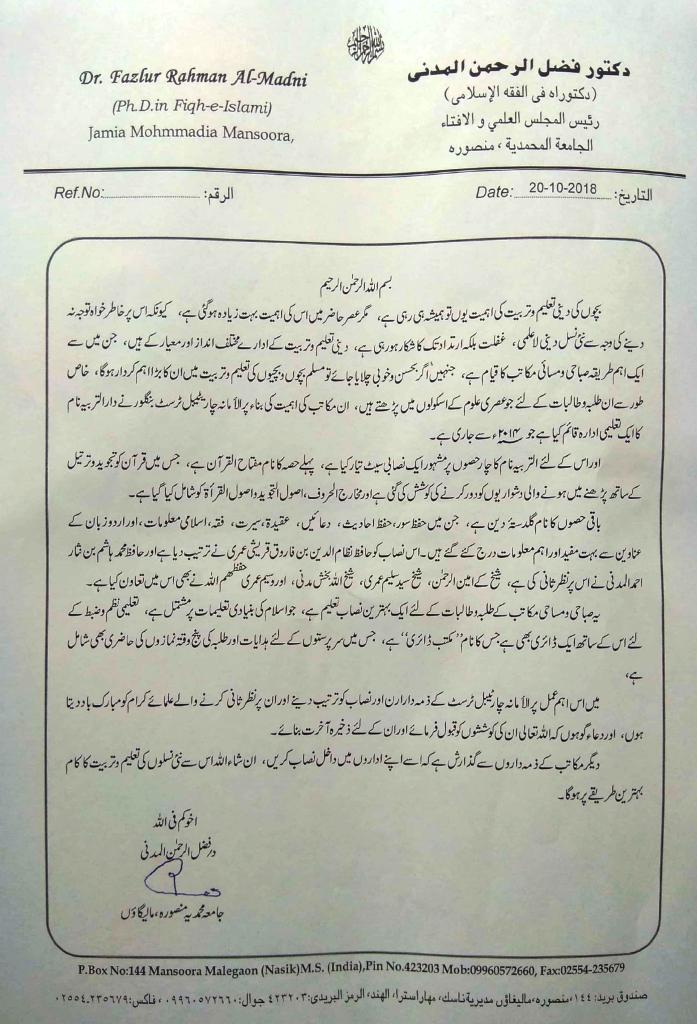 Dr. Fazlur Rahman Al-Madni
(Ph.D.in Fiqh-e-Islami)
Jamia Mohmmadia Mansoora,
دكتور فضل الرحمن المدنى
(دكتوراه فى الفقه الإسلامى)
رئيس المجلس العلمي و الافتاء
الجامعة المحمدية ، منصوره
Ref.No: الرقم:
Date: 20-10-2018 التاريخ:
بسم اللہ الرحمٰن الرحیم
بچوں کی دینی تعلیم وتربیت کی اہمیت یوں تو ہمیشہ ہی رہی ہے، مگر عصر حاضر میں اس کی اہمیت بہت زیادہ ہوگئی ہے، کیونکہ اس پر خاطر خواہ توجہ نہ
دینے کی وجہ سے نئی نسل دینی لاعلمی، غفلت بلکہ ارتداد تک کا شکار ہورہی ہے، دینی تعلیم وتربیت کے ادارے مختلف انداز اور معیار کے ہیں، جن میں سے
ایک اہم طریقہ صباحی ومسائی مکاتب کا قیام ہے، جنہیں اگر بحسن وخوبی چلایا جائے تو مسلم بچوں وبچیوں کی تعلیم وتربیت میں ان کا بڑا اہم کردار ہوگا، خاص
طور سے ان طلبہ وطالبات کے لئے جو عصری علوم کے اسکولوں میں پڑھتے ہیں، ان مکاتب کی اہمیت کی بناء پر الأمانہ چاریٹیبل ٹرسٹ بنگلور نے دار التربیہ نام
کا ایک تعلیمی ادارہ قائم کیا ہے جو ۲۰۱۴ء سے جاری ہے۔
اور اس کے لئے التربیہ نام کا چار حصوں پر مشہور ایک نصابی سیٹ تیار کیا ہے، پہلے حصہ کا نام مفتاح القرآن ہے، جس میں قرآن کو تجوید وترتیل
کے ساتھ پڑھنے میں ہونے والی دشواریوں کو دور کرنے کی کوشش کی گئی ہے اور مخارج الحروف، اصول التجوید واصول القرأۃ کو شامل کیا گیا ہے۔
باقی حصوں کا نام گلدستۂ دین ہے، جن میں حفظ سور، حفظ احادیث، دعائیں، عقیدہ، سیرت، فقہ، اسلامی معلومات، اور اردو زبان کے
عناوین سے بہت مفید اور اہم معلومات درج کئے گئے ہیں۔ اس نصاب کو حافظ نظام الدین بن فاروق قریشی عمری نے ترتیب دیا ہے اور حافظ محمد ہاشم بن نثار
احمد المدنی نے اس پر نظر ثانی کی ہے، شیخ کے امین الرحمٰن، شیخ سید سلیم عمری، شیخ اللہ بخش مدنی، اور وسیم عمری حفظھم اللہ نے بھی اس میں تعاون کیا ہے۔
یہ صباحی ومساحی مکاتب کے طلبہ وطالبات کے لئے ایک بہترین نصاب تعلیم ہے، جو اسلام کی بنیادی تعلیمات پر مشتمل ہے، تعلیمی نظم وضبط کے
لئے اس کے ساتھ ایک ڈائری بھی ہے جس کا نام ’’مکتب ڈائری‘‘ ہے، جس میں سرپرستوں کے لئے ہدایات اور طلبہ کی پنج وقتہ نمازوں کی حاضری بھی شامل
ہے،
میں اس اہم عمل پر الأمانہ چارٹیبل ٹرسٹ کے ذمہ داران اور نصاب کو ترتیب دینے اور ان پر نظر ثانی کرنے والے علمائے کرام کو مبارک باد دیتا
ہوں، اور دعاء گو ہوں کہ اللہ تعالی ان کی کوششوں کو قبول فرمائے اور ان کے لئے ذخیرۂ آخرت بنائے۔
دیگر مکاتب کے ذمہ داروں سے گذارش ہے کہ اسے اپنے اداروں میں داخل نصاب کریں، ان شاء اللہ اس سے نئی نسلوں کی تعلیم وتربیت کا کام
بہترین طریقے پر ہوگا۔
اخوکم فی اللہ
د رفضل الرحمٰن المدنی
جامعہ محمدیہ منصورہ، مالیگاؤں
P.Box No:144 Mansoora Malegaon (Nasik)M.S. (India),Pin No.423203 Mob:09960572660, Fax:02554-235679
صندوق بريد: ١٤٤، منصوره، ماليغاؤں مديرية ناسك، مهاراسترا، الهند، الرمز البريدى: ٤٢٣٢٠٣ جوال: ٠٩٩٦٠٥٧٢٦٦٠ ، فاكس: ٠٢٥٥٤-٢٣٥٦٧٩